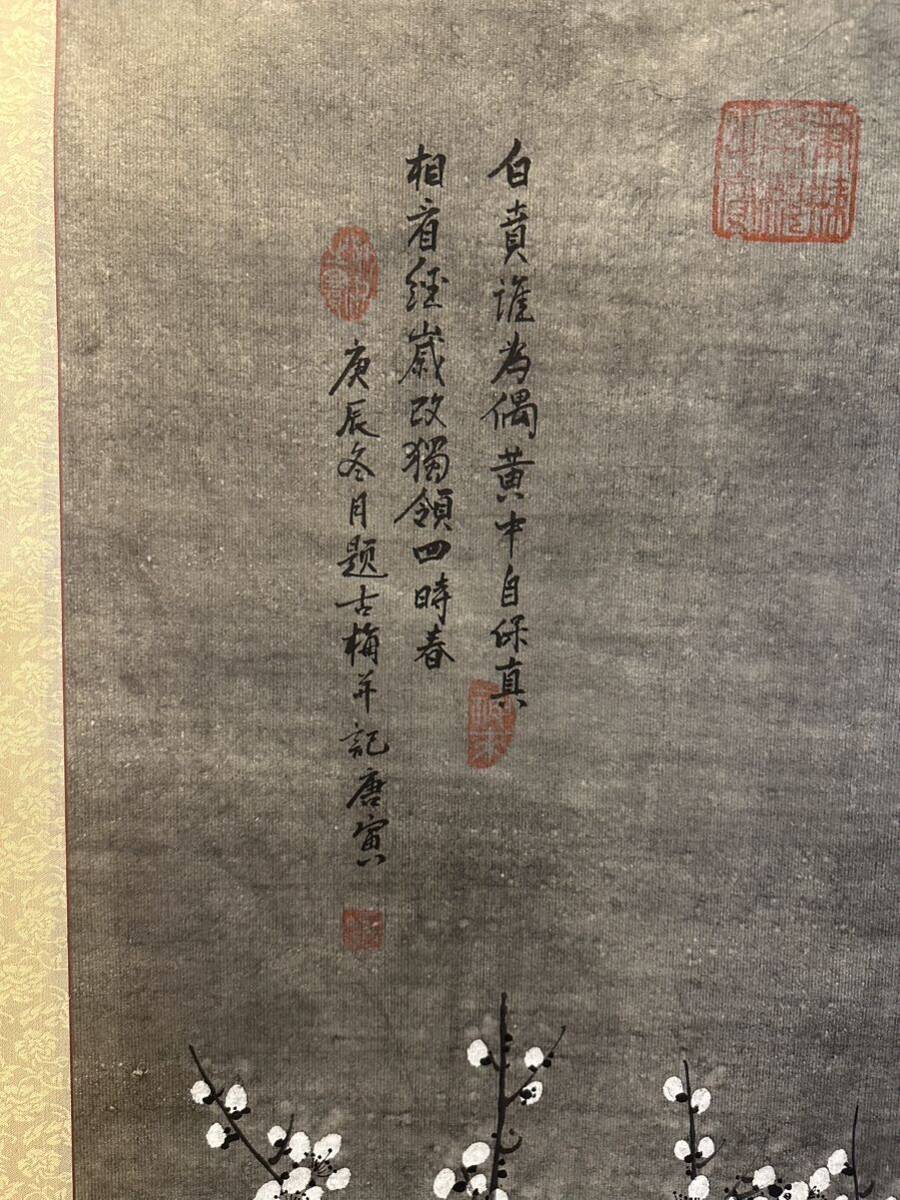 白賁誰為偶黄中自保真
相看經歲改獨領四時春
庚辰冬月题古梅并記唐寅